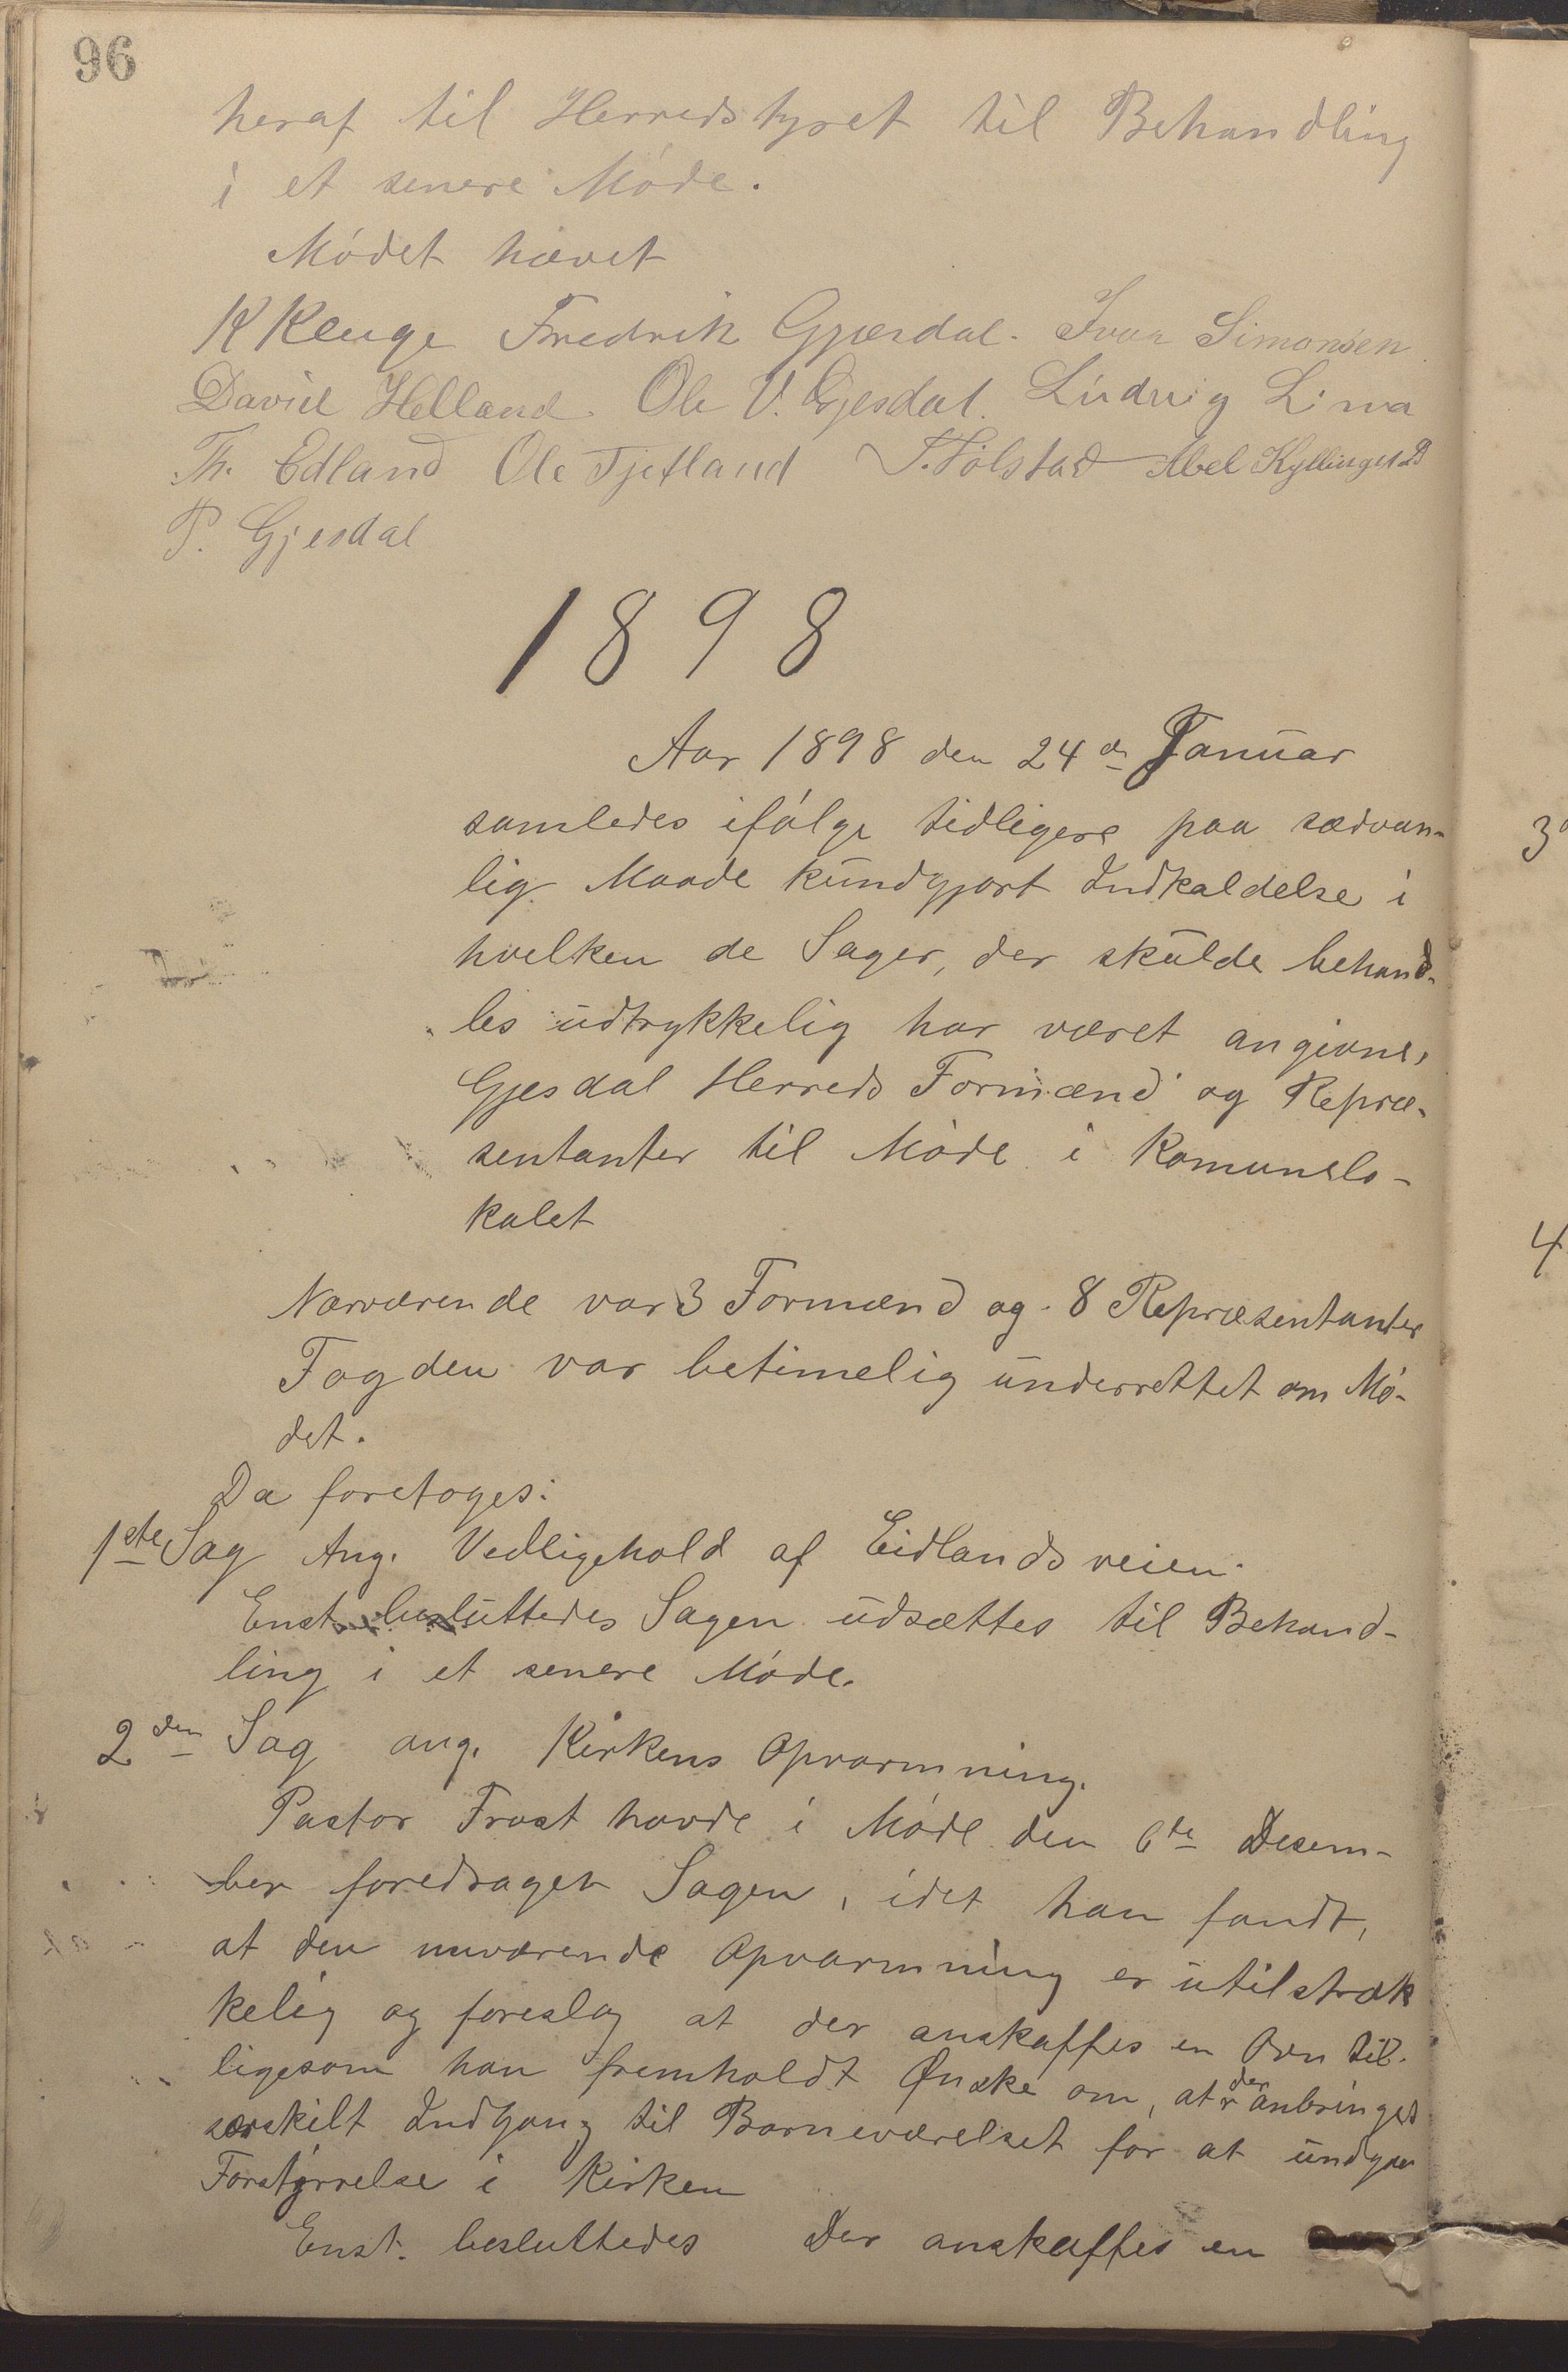 96
heraf til Herredstyret til Behandling
i et senere Møde.
Mødet hævet
K Kluge Fredrik Gjesdal. Ivar Simonsen
David Helland. Ole V. Gjesdal. Ludvig Lima
Th. Edland Ole Tjetland Abel Kyllingst
P. Gjesdal
1898
Aar 1898 den 24de Januar
samledes ifølge tidligere paa sædvan-
lig Maade kundgjort Indkaldelse i
hvelken de Sager, der skulde behand-
les udtrykkelig har været angivne,
Gjesdal Herreds Formænd og Repræ-
sentanter til Møde i Komunelo-
kalet
Nærværende var 3 Formænd og 8 Repræsentanter
Fogden var betimelig underrettet om Mø-
det.
Da foretoges:
1ste Sag Ang. Vedligehold af Eidlandsveien.
Enst. besluttedes Sagen udsættes til Behand-
ling i et senere Møde.
2den Sag ang. Kirkens Opvarmning.
Pastor Frost havde i Møde den 6te Desem-
ber foredraget Sagen, idet han fandt,
at den nuværende Opvarmning er utilstræk
kelig og foreslog at der anskaffes en Ovn til.
ligesom han fremholdt Ønske om, at der anbringes
særskilt Indgang til Barneværelset for at undgaa
Forstyrrelse i Kirken
Enst. besluttedes Der anskaffes en
3
4